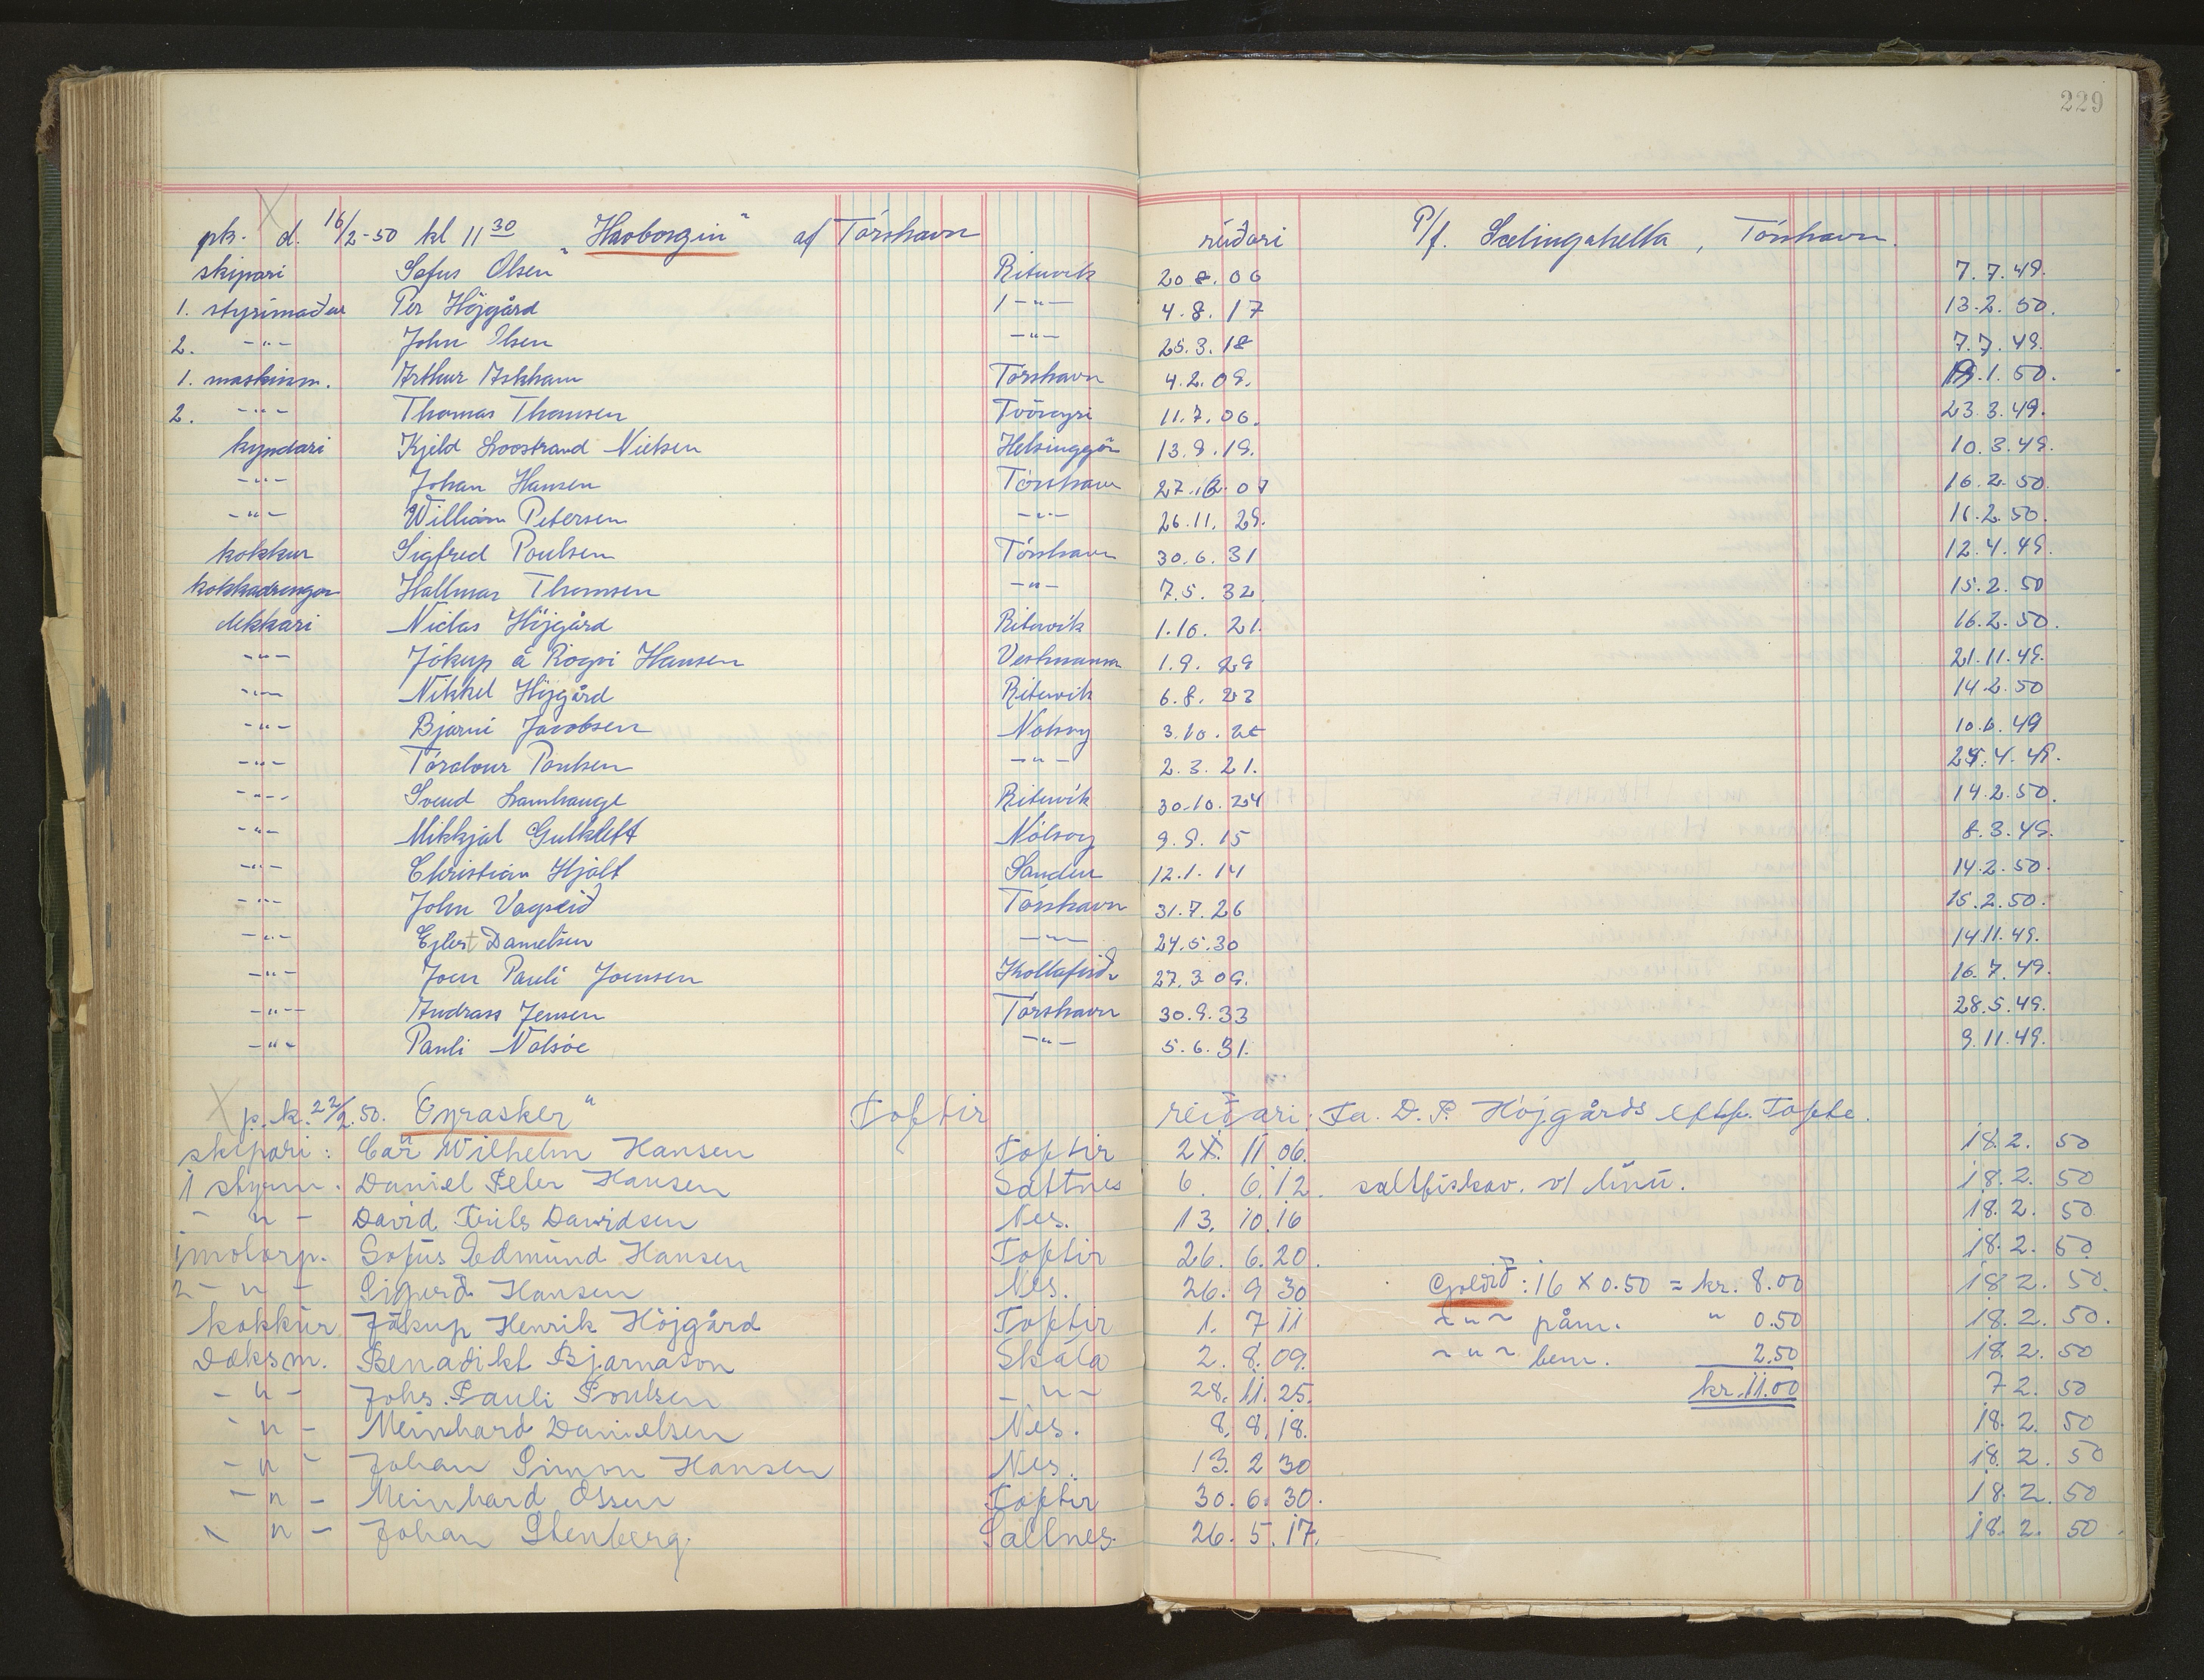 229
pk. d. 16/2-50 kl 11 30 „Havborgin“ af Tórshavn reiðari P/f. Selingahella, Tórshavn.
skipari Sofus Olsen Rituvik 20 8. 06 7. 7. 49.
1. stýrimaður Per Höjgård -"- 4. 8. 17 13. 2. 50.
2. -"- John Olsen -"- 25. 3. 18 7. 7. 49.
1. maskinm. Arthur Askham Tórshavn 4. 2. 09. .1. 50.
2. -"- Thomas Thomsen Tvöroyri 11. 7. 06. 23. 3. 49.
kyndari Kjeld Nielsen 13. 9. 19. 10. 3. 49.
-"- Johan Hansen Tórshavn 27. 07 16. 2. 50.
-"- William Petersen -"- 26. 11. 29. 16. 2. 50.
kokkur Sigfred Poulsen Tórshavn 30. 6. 31 12. 4. 49.
kokkadrongur Hallmar Thomsen -"- 7. 5. 32 15. 2. 50
dekkari Niclas Höjgård Rituvik 1. 10. 21. 16. 2. 50.
-"- Jókup á Rógvi Hansen Vestmanna 1. 9. 29 21. 11. 49.
-"- Nikkel Höjgård Rituvik 6. 8. 23 14. 2. 50
-"- Bjarni Jacobsen Nolsoy 3. 10. 10. 6. 49
-"- Tórálvur Poulsen -"- 2. 3. 21. 4. 49.
-"- Svend Lamhauge Rituvik 30. 10. 24 14. 2. 50.
-"- Mikkjal Gulklett Nólsoy 9. 9. 15 8. 3. 49.
-"- Christian Hjalt Sandur 12. 1. 14 14. 2. 50.
-"- John Vágseið Tórshavn 31. 7. 26 15. 2. 50.
-"- Ejlert Danielsen -"- 24. 5. 30 14. 11. 49.
-"- Joen Pauli Joensen Kollafirði 27. 3. 09. 16. 7. 49.
-"- Andrass Jensen Tórshavn 30. 9. 33 28. 5. 49.
-"- Pauli Nolsöe -"- 5. 6. 31. 9. 11. 49.
p.k. 22/2. 50. Eyrasker“ Toftir reiðari: Fa. D. P. Höjgårds eftf. Tofte.
skipari: Carl Wilhelm Hansen Toftir 11 06. 18. 2. 50
1 stýrm. Daniel Peter Hansen Saltnes 6. 6. 12. saltfiskav. v/ línu. 18. 2. 50
- " - David Frits Davidsen Nes. 13. 10. 16 18. 2. 50
1 motorp. Sofus Edmund Hansen Toftir 26. 6. 20. 18. 2. 50
2 - " - Sigurd Hansen Nes. 26. 9 30 Goldið: 16 × 0.50 = kr. 8.00 18 2. 50.
kokkur Jákup Henrik Höjgård Toftir 1. 7 11 - " - påm. " 0.50 18. 2. 50.
Dæksm. Benadikt Bjarnason Skála 2. 8. 09. - " - bem. 2.50 18. 2. 50
- " - Johs. Pauli Poulsen - " - 28. 11. 25. kr. 11.00 7 2. 50
- " - Meinhard Danielsen Nes. 8. 8. 18. 18. 2. 50
- " - Johan Simon Hansen Nes. 13. 2 30 18. 2. 50
- " - Meinhard Ossen Toftir 30. 6. 30. 18. 2. 50
- " - Johan Stenberg. Saltnes. 26. 5. 17. 18. 2. 50